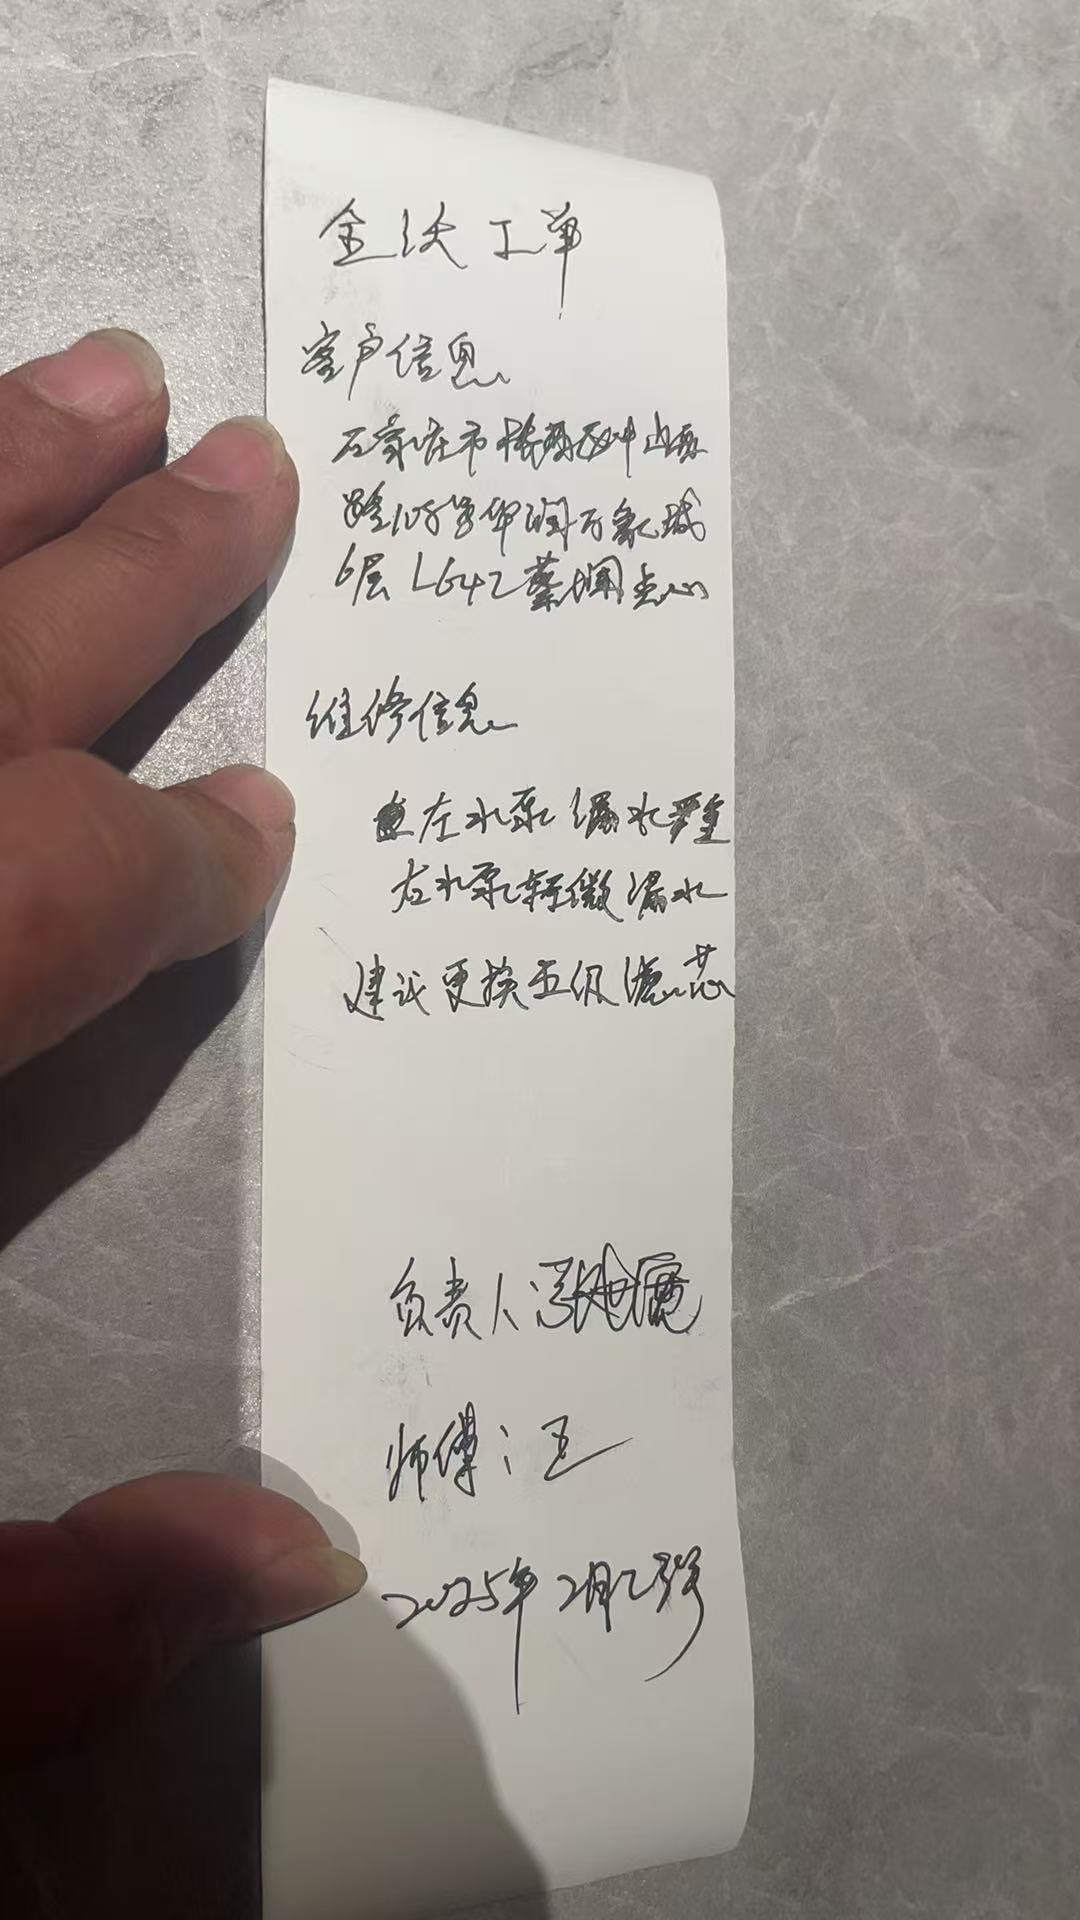 全沃工单
客户信息
石家庄市桥西区中山西
路108号华润万象城
6层L642蔡澜点心
维修信息
左水泵漏水严重
右水泵轻微漏水
建议更换五级滤芯
负责人:
师傅:王
2025年2月23号